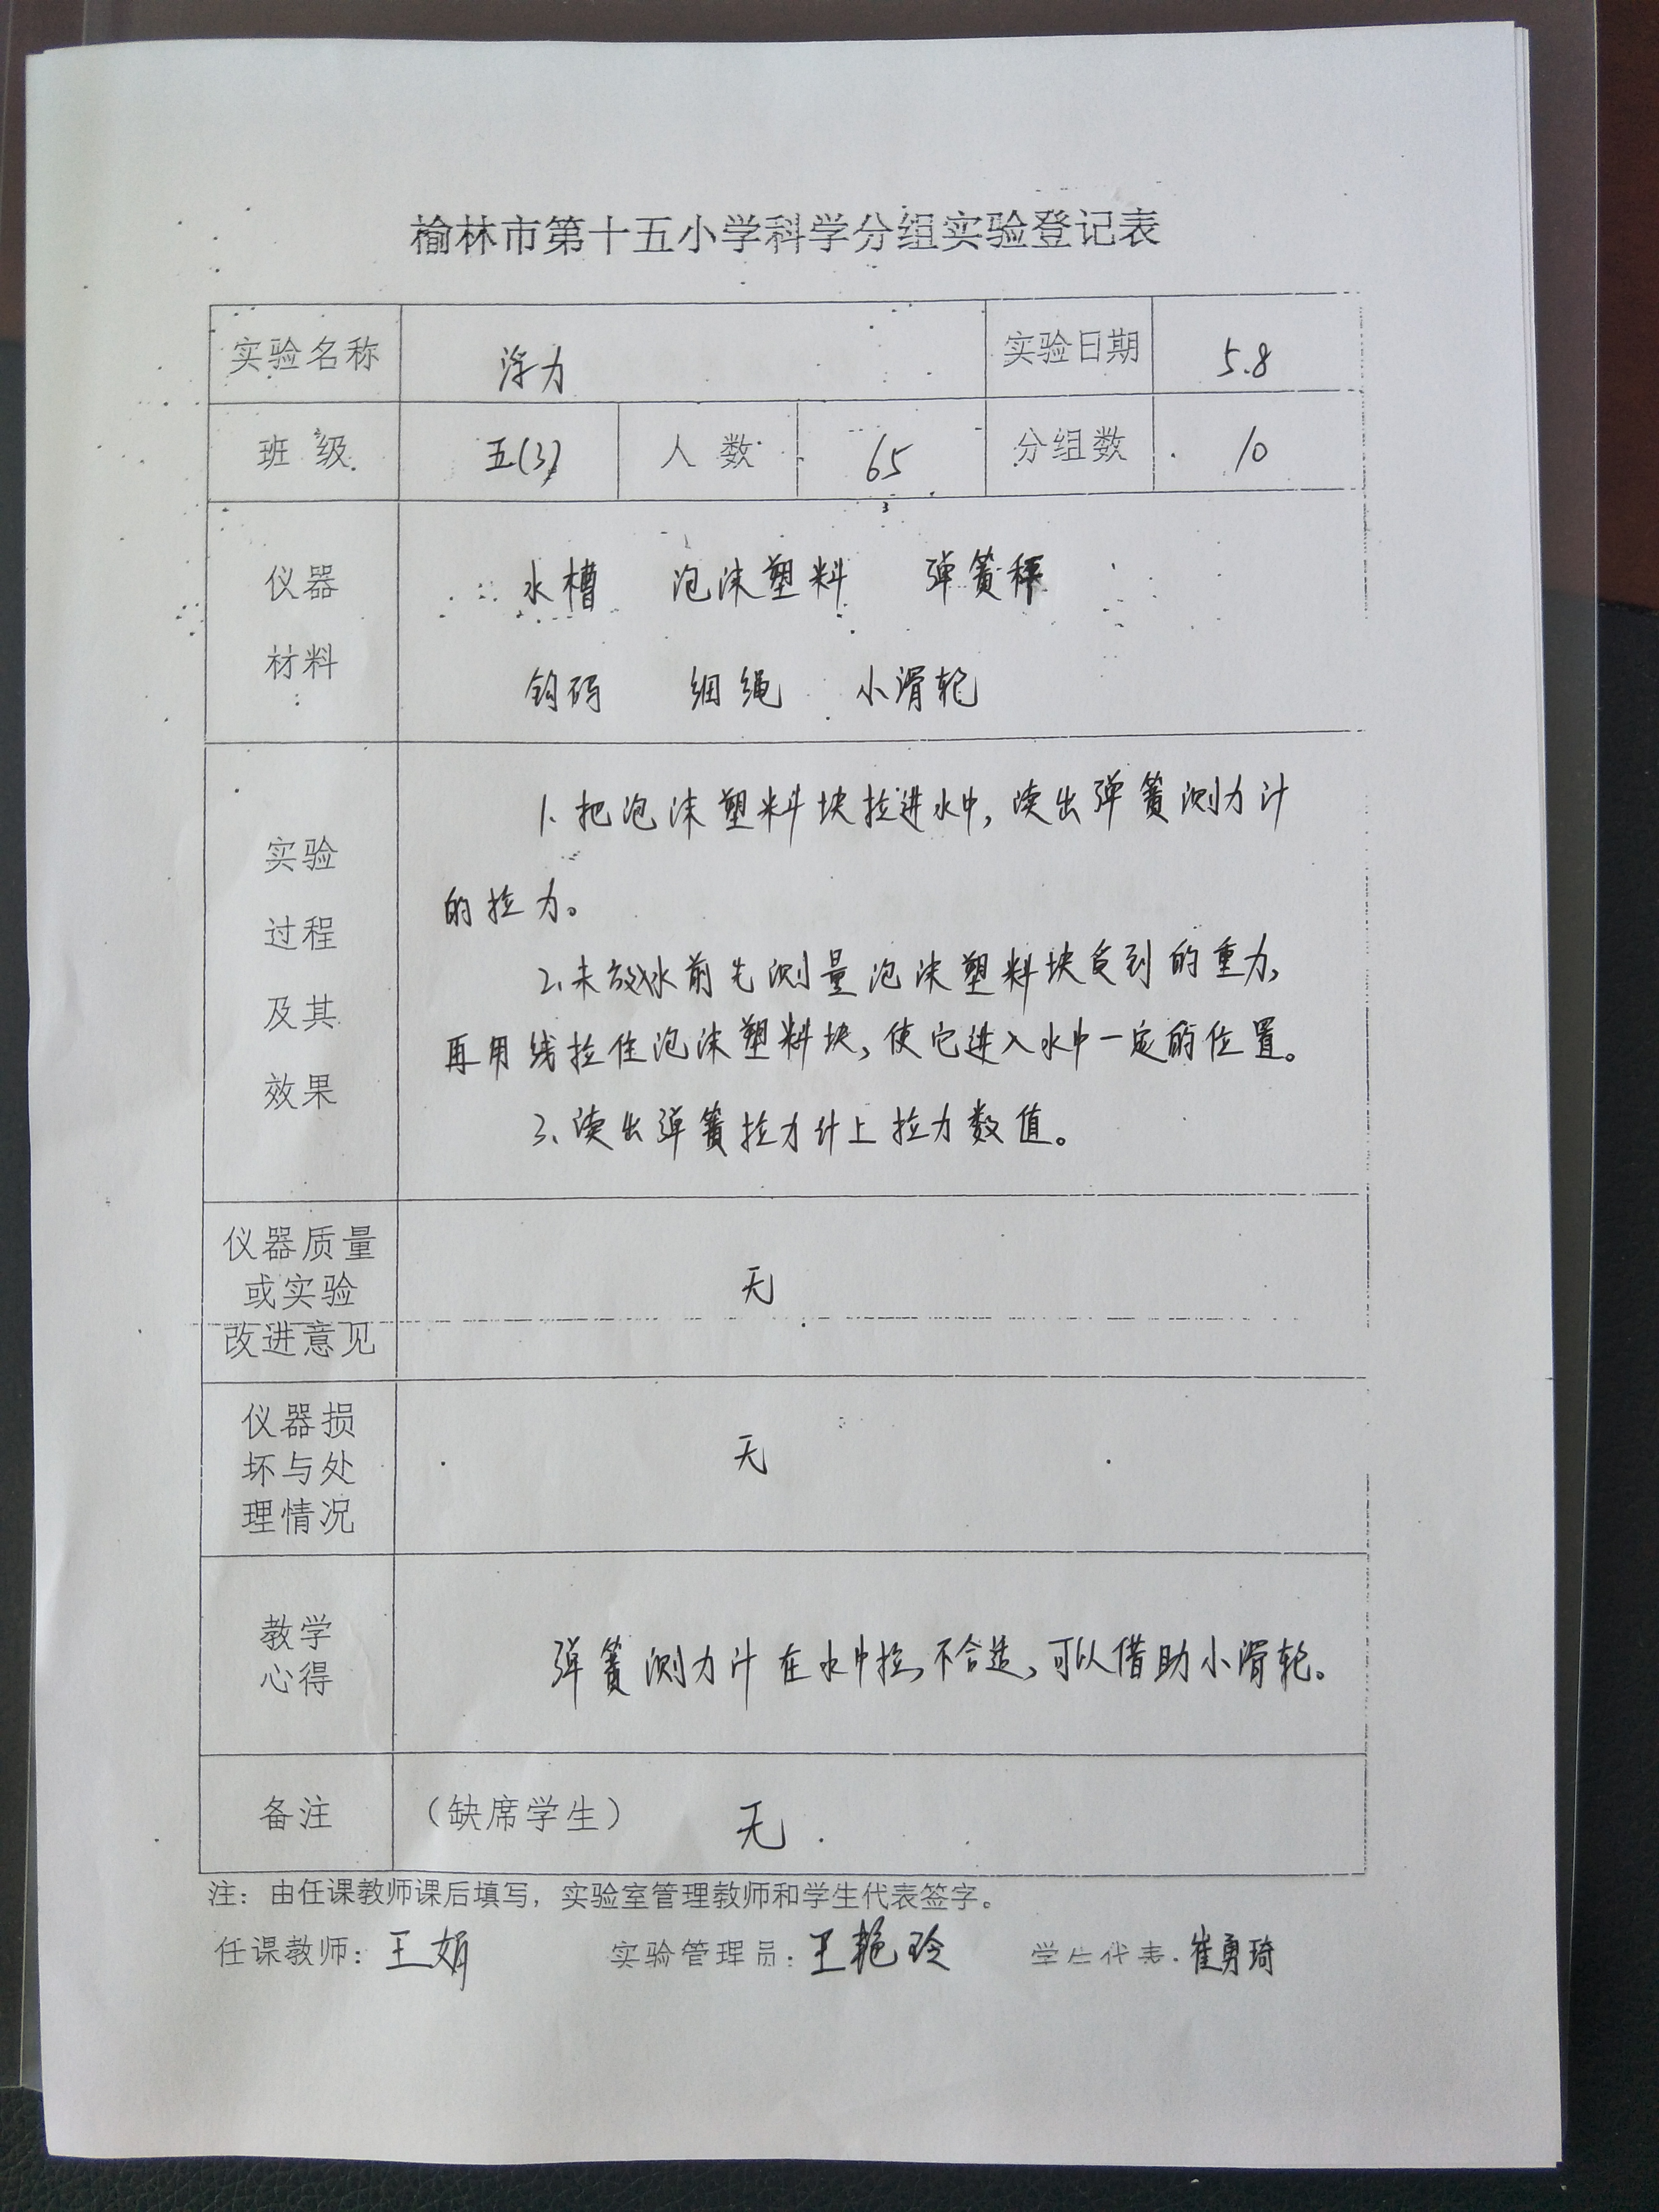 榆林市第十五小学科学分组实验登记表
实验名称 浮力 实验日期 5.8
班级 五(3) 人数 65 分组数 10
仪器 水槽 泡沫塑料 弹簧秤
材料 钩码 细绳 小滑轮
实验
过程
及其
效果
1、把泡沫塑料块拉进水中,读出弹簧测力计
的拉力。
2、未放水前先测量泡沫塑料块受到的重力,
再用线拉住泡沫塑料块,使它进入水中一定的位置。
3、读出弹簧拉力计上拉力数值。
仪器质量
或实验
改进意见
无
仪器损
坏与处
理情况
无
教学
心得
弹簧测力计在水中拉,不合适,可以借助小滑轮。
备注 (缺席学生) 无
注:由任课教师课后填写,实验室管理教师和学生代表签字。
任课教师:王娟 实验管理员:王艳玲 学生代表:崔勇琦